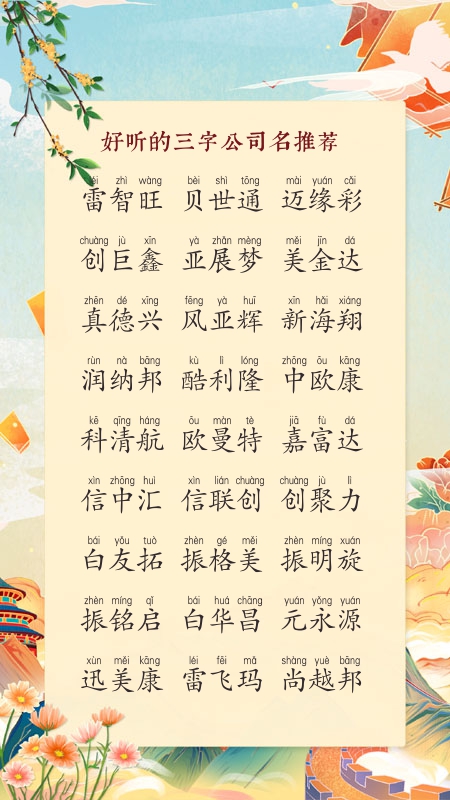 好听的三字公司名推荐
léi zhì wàng bèi shì tōng mài yuán cǎi
雷智旺 贝世通 迈缘彩
chuàng jù xīn yà zhǎn mèng měi jīn dá
创巨鑫 亚展梦 美金达
zhēn dé xīng fēng yà huī xīn hǎi xiáng
真德兴 风亚辉 新海翔
rùn nà bāng kù lì lóng zhōng ōu kāng
润纳邦 酷利隆 中欧康
kē qīng háng ōu màn tè jiā fù dá
科清航 欧曼特 嘉富达
xìn zhōng huì xìn lián chuàng chuàng jù lì
信中汇 信联创 创聚力
bái yǒu tuò zhèn gé měi zhèn míng xuán
白友拓 振格美 振明旋
zhèn míng qǐ bái huá chāng yuán yǒng yuán
振铭启 白华昌 元永源
xùn měi kāng léi fēi mǎ shàng yuè bāng
迅美康 雷飞玛 尚越邦